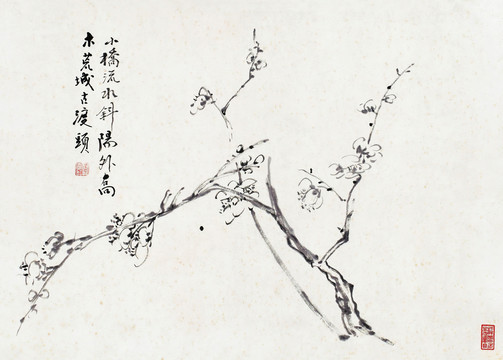 小橋流水斜陽外高
木荒城古渡頭